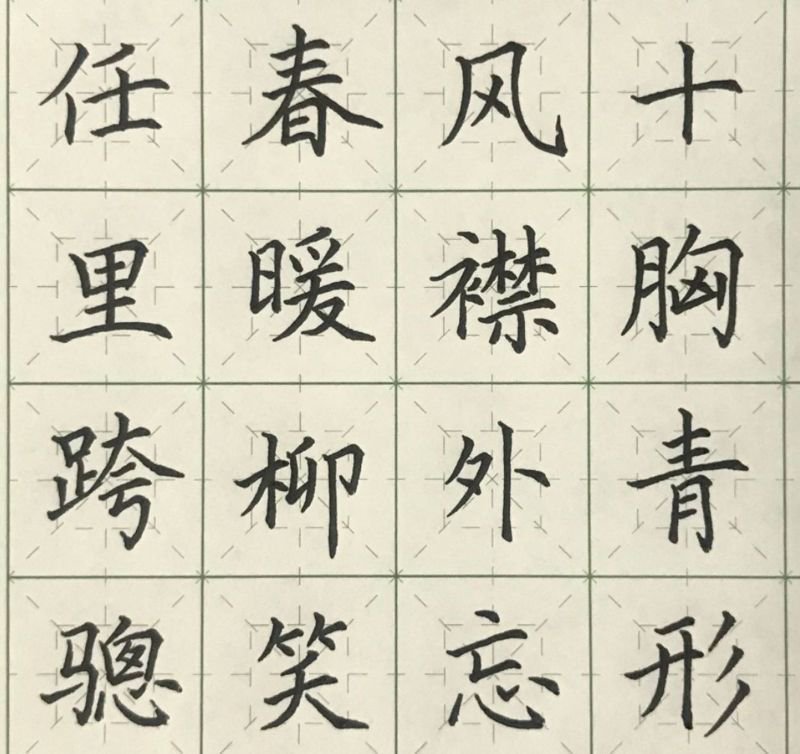 任春风十
里暖襟胸
跨柳外青
骢笑忘形